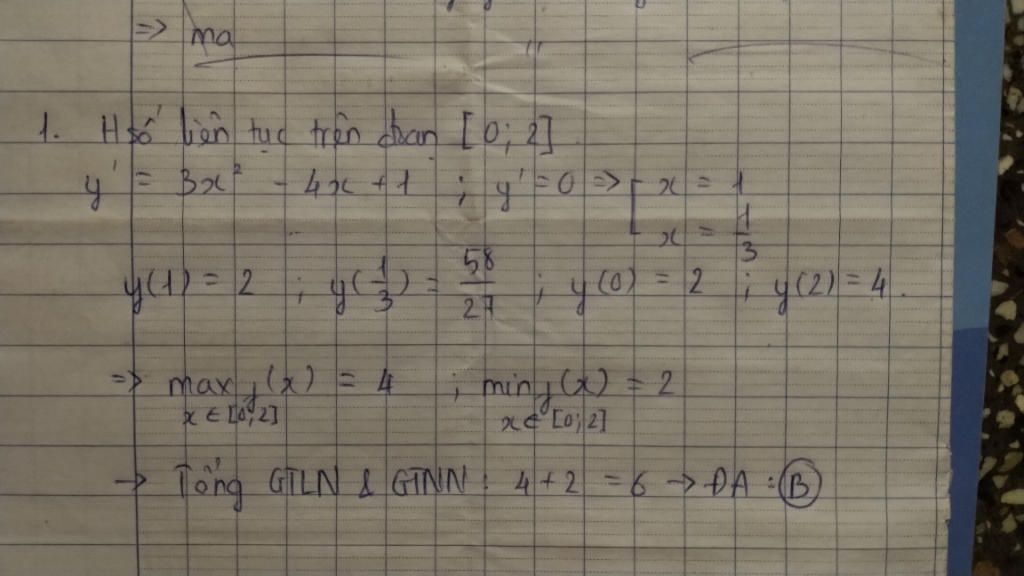 => ma
1. H số liên tục trên đoạn [0; 2]
y' = 3x² - 4x + 1 ; y' = 0 => [ x = 1
x = 1/3
y(1) = 2 ; y(1/3) = 58/27 ; y(0) = 2 ; y(2) = 4.
=> max y(x) = 4 ; min y(x) = 2
x ∈ [0; 2] x ∈ [0; 2]
→ Tổng GTLN & GTNN : 4 + 2 = 6 → ĐA : B